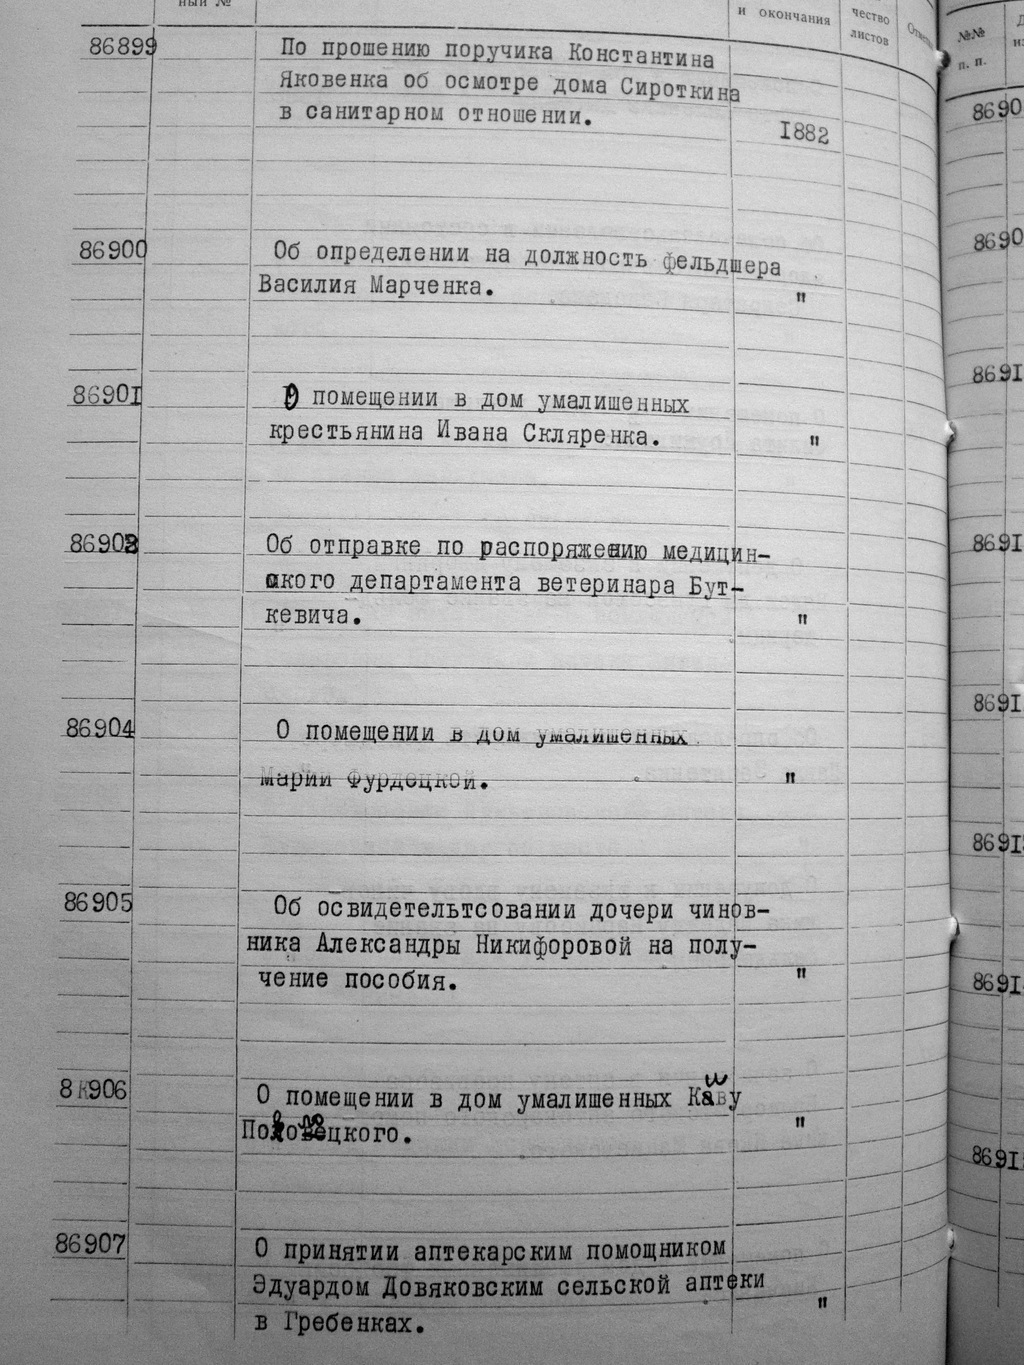 ный №
и окончания
чество
листов
№№
п. п.
86899 По прошению поручика Константина
Яковенка об осмотре дома Сироткина
в санитарном отношении. 1882
86900 Об определении на должность фельдшера
Василия Марченка. "
86901 О помещении в дом умалишенных
крестьянина Ивана Скляренка. "
Об отправке по распоряжению медицин-
ского департамента ветеринара Бут-
кевича. "
86904 О помещении в дом умалишенных
Марии Фурдецкой. "
86905 Об освидетельтсовании дочери чинов-
ника Александры Никифоровой на полу-
чение пособия. "
8к906 О помещении в дом умалишенных
"
86907 О принятии аптекарским помощником
Эдуардом Довяковским сельской аптеки
в Гребенках. "
8690
8690
8691
8691
8691
8691
8691
8691